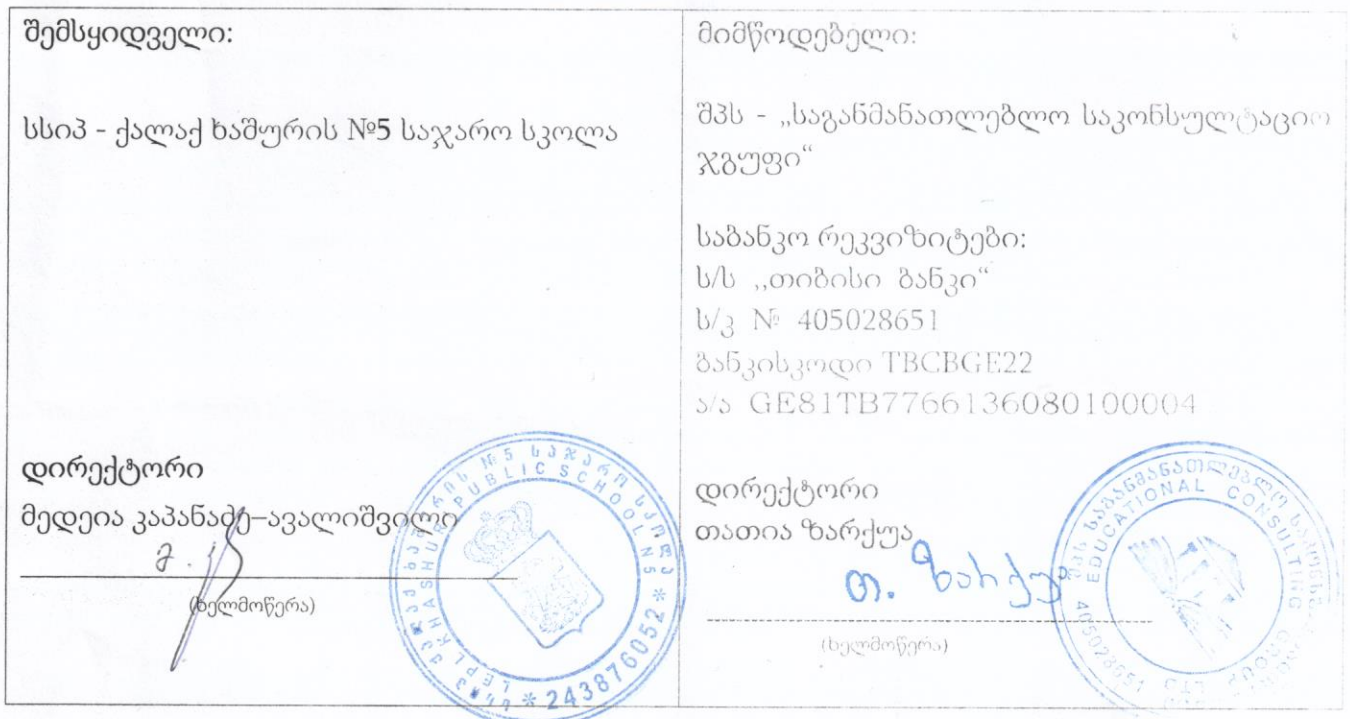 შემსყიდველი:
სსიპ - ქალაქ ხაშურის №5 საჯარო სკოლა
დირექტორი
მედეია კაპანაძე–ავალიშვილი
(ხელმოწერა)
სსიპ ქალაქ ხაშურის №5 საჯარო სკოლა
LEPL KHASHURI PUBLIC SCHOOL N5
* 243876052 *
მიმწოდებელი:
შპს - „საგანმანათლებლო საკონსულტაციო
ჯგუფი“
საბანკო რეკვიზიტები:
ს/ს ,,თიბისი ბანკი“
ს/კ № 405028651
ბანკისკოდი TBCBGE22
ა/ა GE81TB7766136080100004
დირექტორი
თათია ზარქუა
თ. ზარქუა
(ხელმოწერა)
შპს საგანმანათლებლო
EDUCATIONAL CONSULTING GROUP LTD
405028651